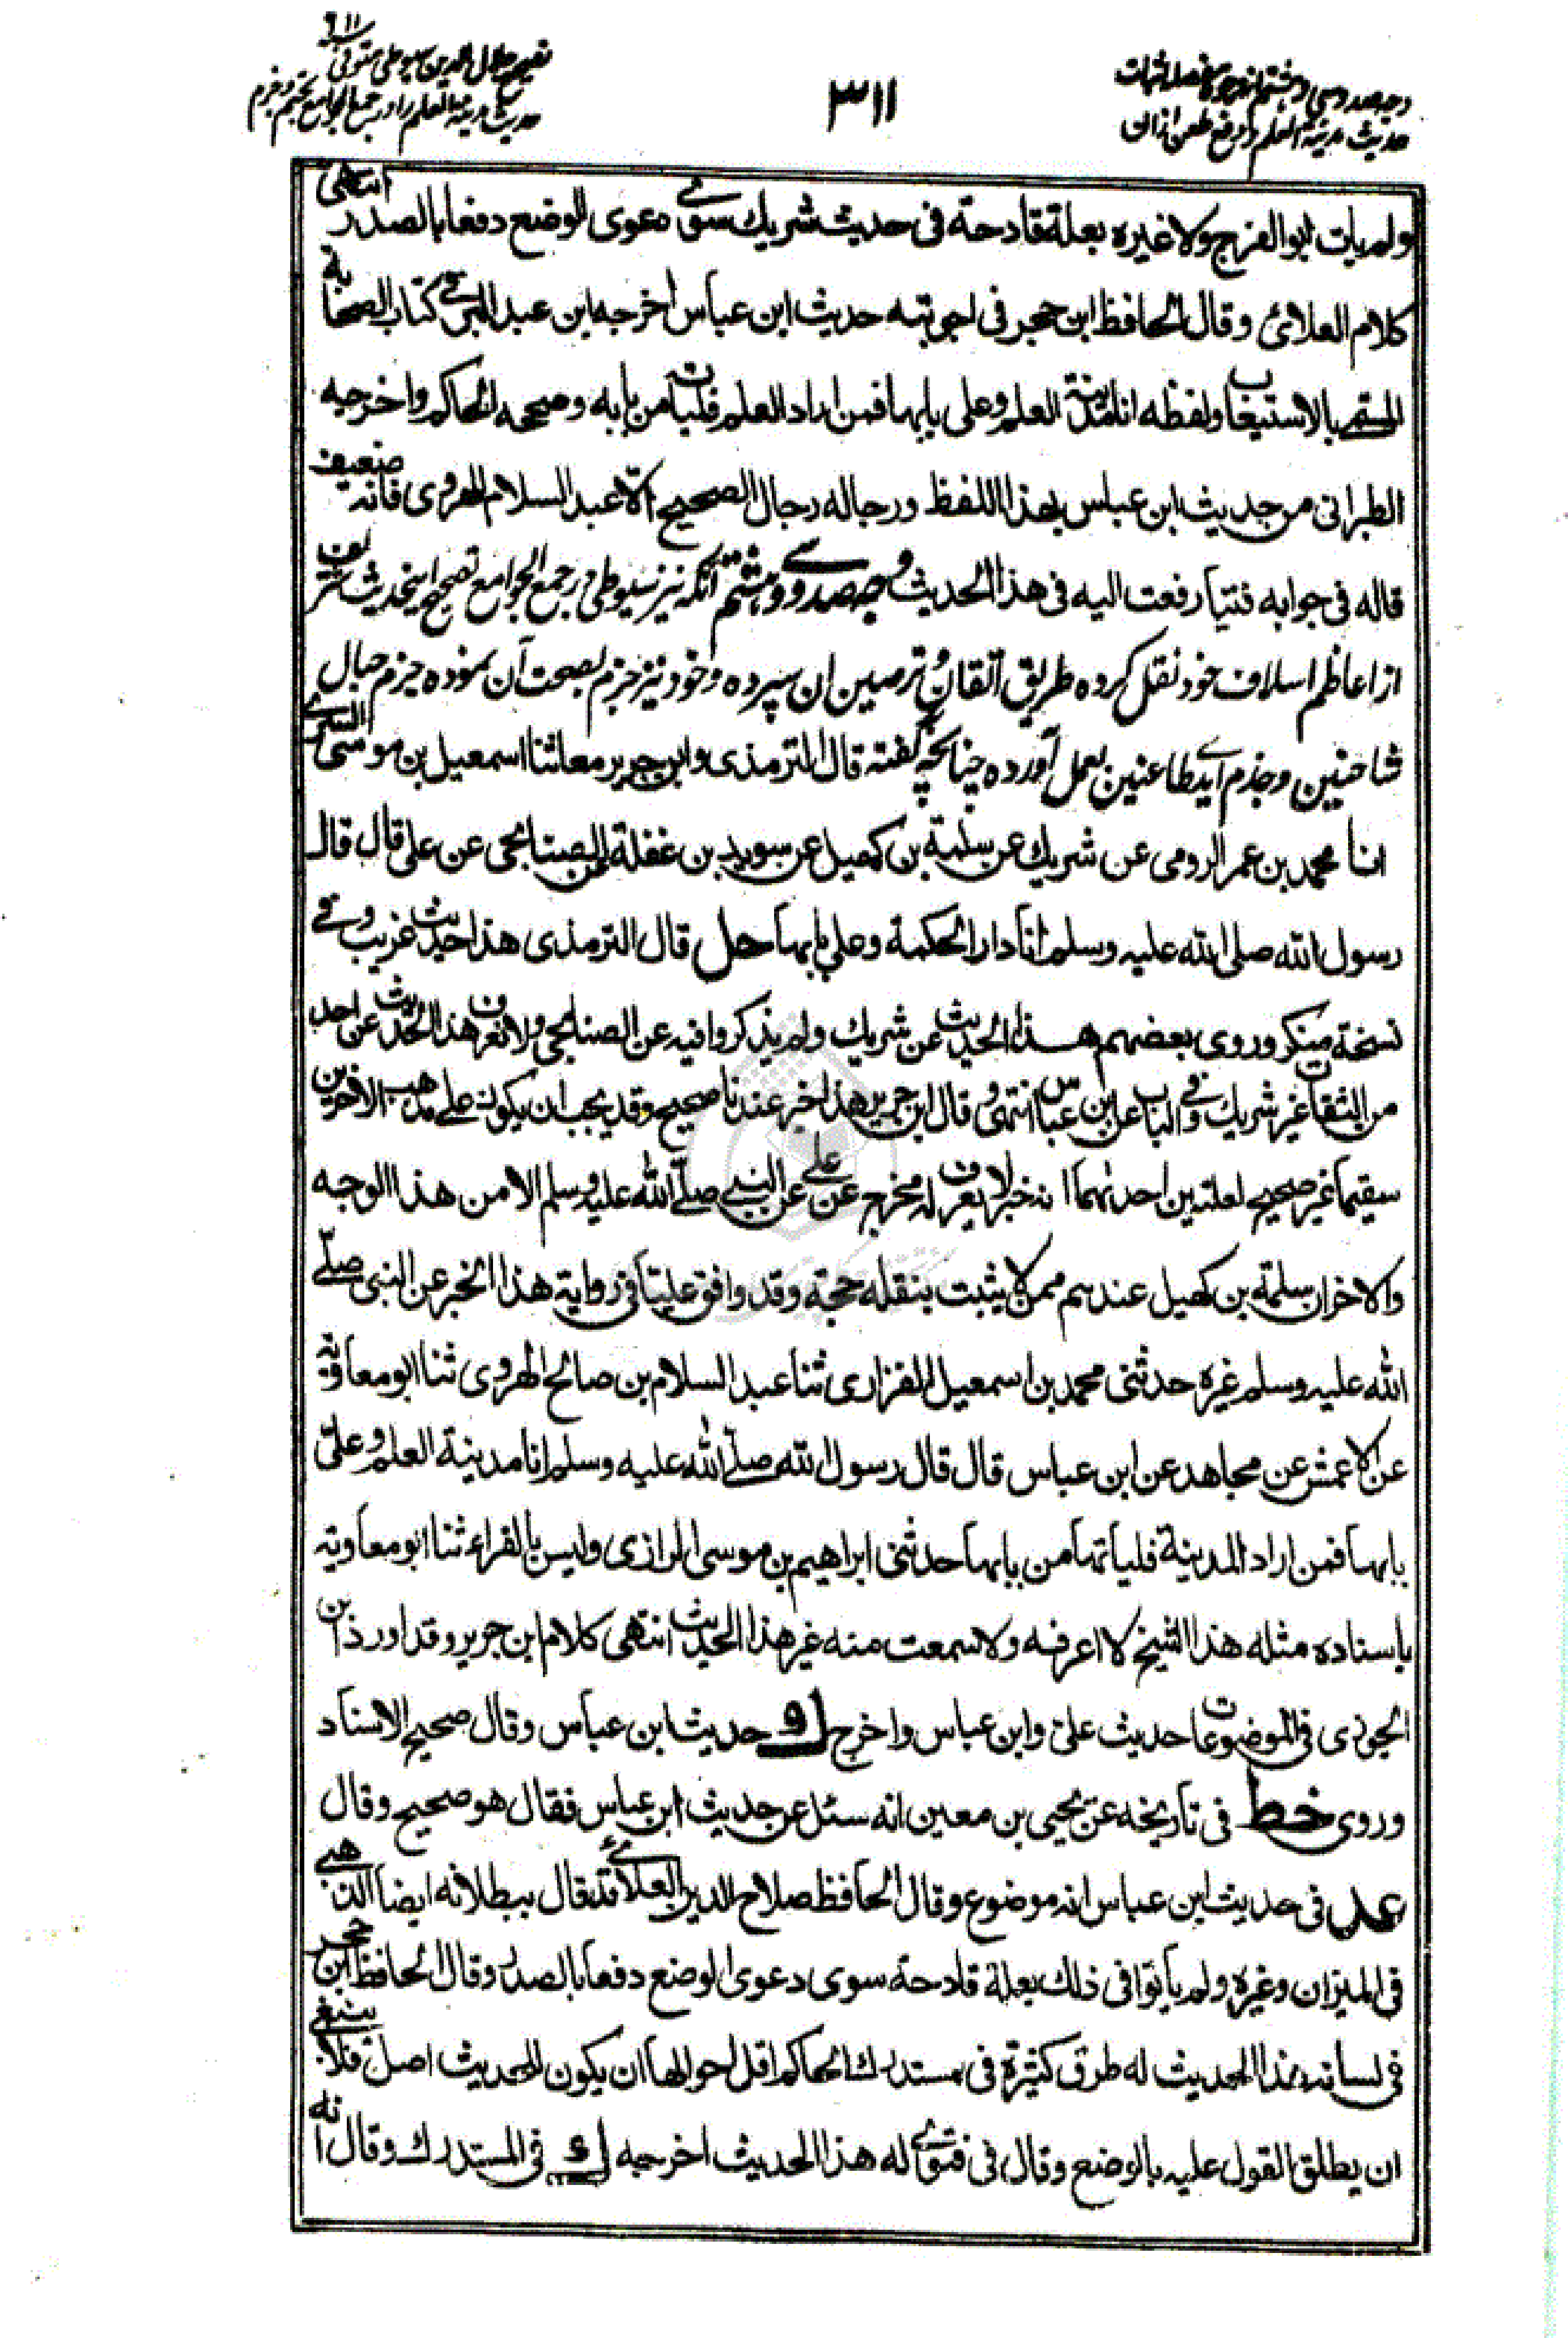 وجه صد و سی و هشتم از وجوه مفصله اثبات
حدیث مدینة العلم و دفع طعن ازان
۳۱۱
تصحیح جلال الدین سیوطی متوفی ۹۱۱
حدیث مدینة العلم را در جمع الجوامع بحتم و جزم
ولم یات ابو الفرج ولا غیره بعلة قادحة فی حدیث شریك سوی دعوی الوضع دفعا بالصدر انتهی
کلام العلائی وقال الحافظ ابن حجر فی اجوبته حدیث ابن عباس اخرجه ابن عبد البر فی کتاب الصحابة
المسمی بالاستیعاب ولفظه انا مدینة العلم وعلی بابها فمن اراد العلم فلیات من بابه وصححه الحاکم واخرجه
الطبرانی من حدیث ابن عباس بهذا اللفظ ورجاله رجال الصحیح الا عبد السلام الهروی فانه ضعیف
قاله فی جوابه فتیا رفعت الیه فی هذا الحدیث وجه صد و سی و هشتم آنکه نیز سیوطی در جمع الجوامع تصحیح این حدیث شریف
از اعاظم اسلاف خود نقل کرده طریق اتقان و ترصین آن سپرده و خود نیز جزم بصحت آن نموده جزم حبال
شاحنین و جذم ایدی طاعنین بعمل آورده چنانچه گفته قال الترمذی وابن جریر معا ثنا اسمعیل بن موسی السدی
انا محمد بن عمر الرومی عن شریك عن سلمة بن کهیل عن سوید بن غفلة عن الصنابحی عن علی قال قال
رسول الله صلی الله علیه وسلم انا دار الحکمة وعلی بابها حل قال الترمذی هذا حدیث غریب وفی
نسخة منکر وروی بعضهم هذا الحدیث عن شریك ولم یذکروا فیه عن الصنابحی ولا نعرف هذا الحدیث عن احد
من الثقات غیر شریك وفی الباب عن ابن عباس انتهی وقال ابن جریر هذا خبر عندنا صحیح وقد یجب ان یکون علی مذهب الاخرین
سقیما غیر صحیح لعلتین احدهما انه خبر لا یعرف له مخرج عن علی عن النبی صلی الله علیه وسلم الا من هذا الوجه
والاخران سلمة بن کهیل عندهم ممن لا یثبت بنقله حجة وقد وافق علیا فی روایة هذا الخبر عن النبی صلی
الله علیه وسلم غیره حدثنی محمد بن اسمعیل الفزاری ثنا عبد السلام بن صالح الهروی ثنا ابو معاویة
عن الاعمش عن مجاهد عن ابن عباس قال قال رسول الله صلی الله علیه وسلم انا مدینة العلم وعلی
بابها فمن اراد المدینة فلیاتها من بابها حدثنی ابراهیم بن موسی الرازی ولیس بالفراء ثنا ابو معاویة
باسناده مثله هذا الشیخ لا اعرفه ولا سمعت منه غیر هذا الحدیث انتهی کلام ابن جریر وقد اورد ابن
الجوزی فی الموضوعات حدیث علی وابن عباس واخرج ك حدیث ابن عباس وقال صحیح الاسناد
وروی خط فی تاریخه عن یحیی بن معین انه سئل عن حدیث ابن عباس فقال هو صحیح وقال
عد فی حدیث ابن عباس انه موضوع وقال الحافظ صلاح الدین العلائی قد قال ببطلانه ایضا الذهبی
فی المیزان وغیره ولم یاتوا فی ذلك بعلة قادحة سوی دعوی الوضع دفعا بالصدر وقال الحافظ ابن حجر
فی لسانه هذا الحدیث له طرق کثیرة فی مستدرك الحاکم اقل احوالها ان یکون للحدیث اصل فلا ینبغی
ان یطلق القول علیه بالوضع وقال فی فتوی له هذا الحدیث اخرجه ك فی المستدرك وقال انه